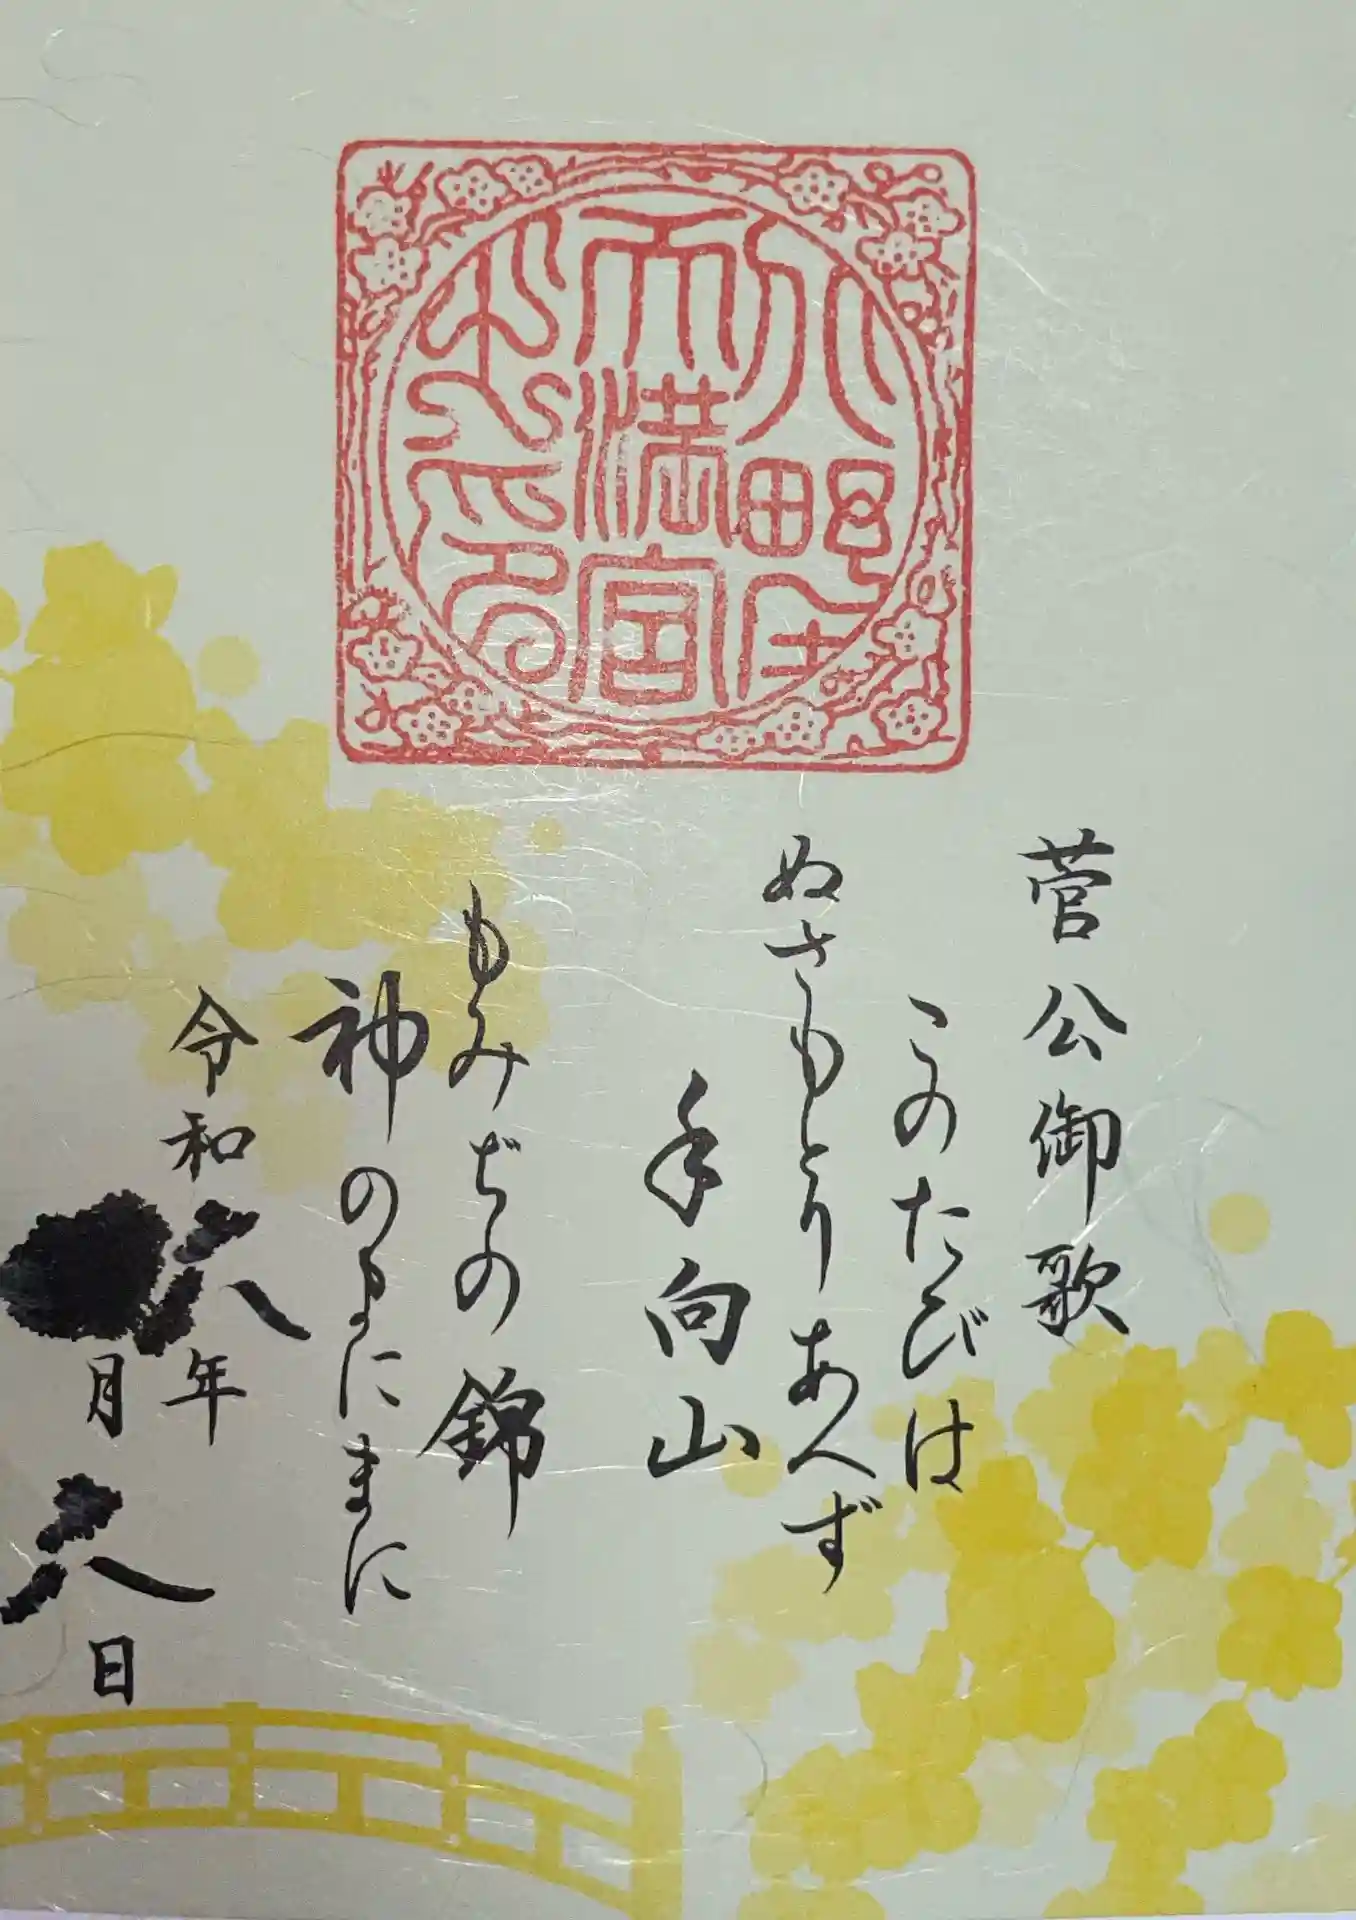 天満宮
菅公御歌
このたびは
ぬさもとりあへず
手向山
もみぢの錦
神のまにまに
令和六年
月 日